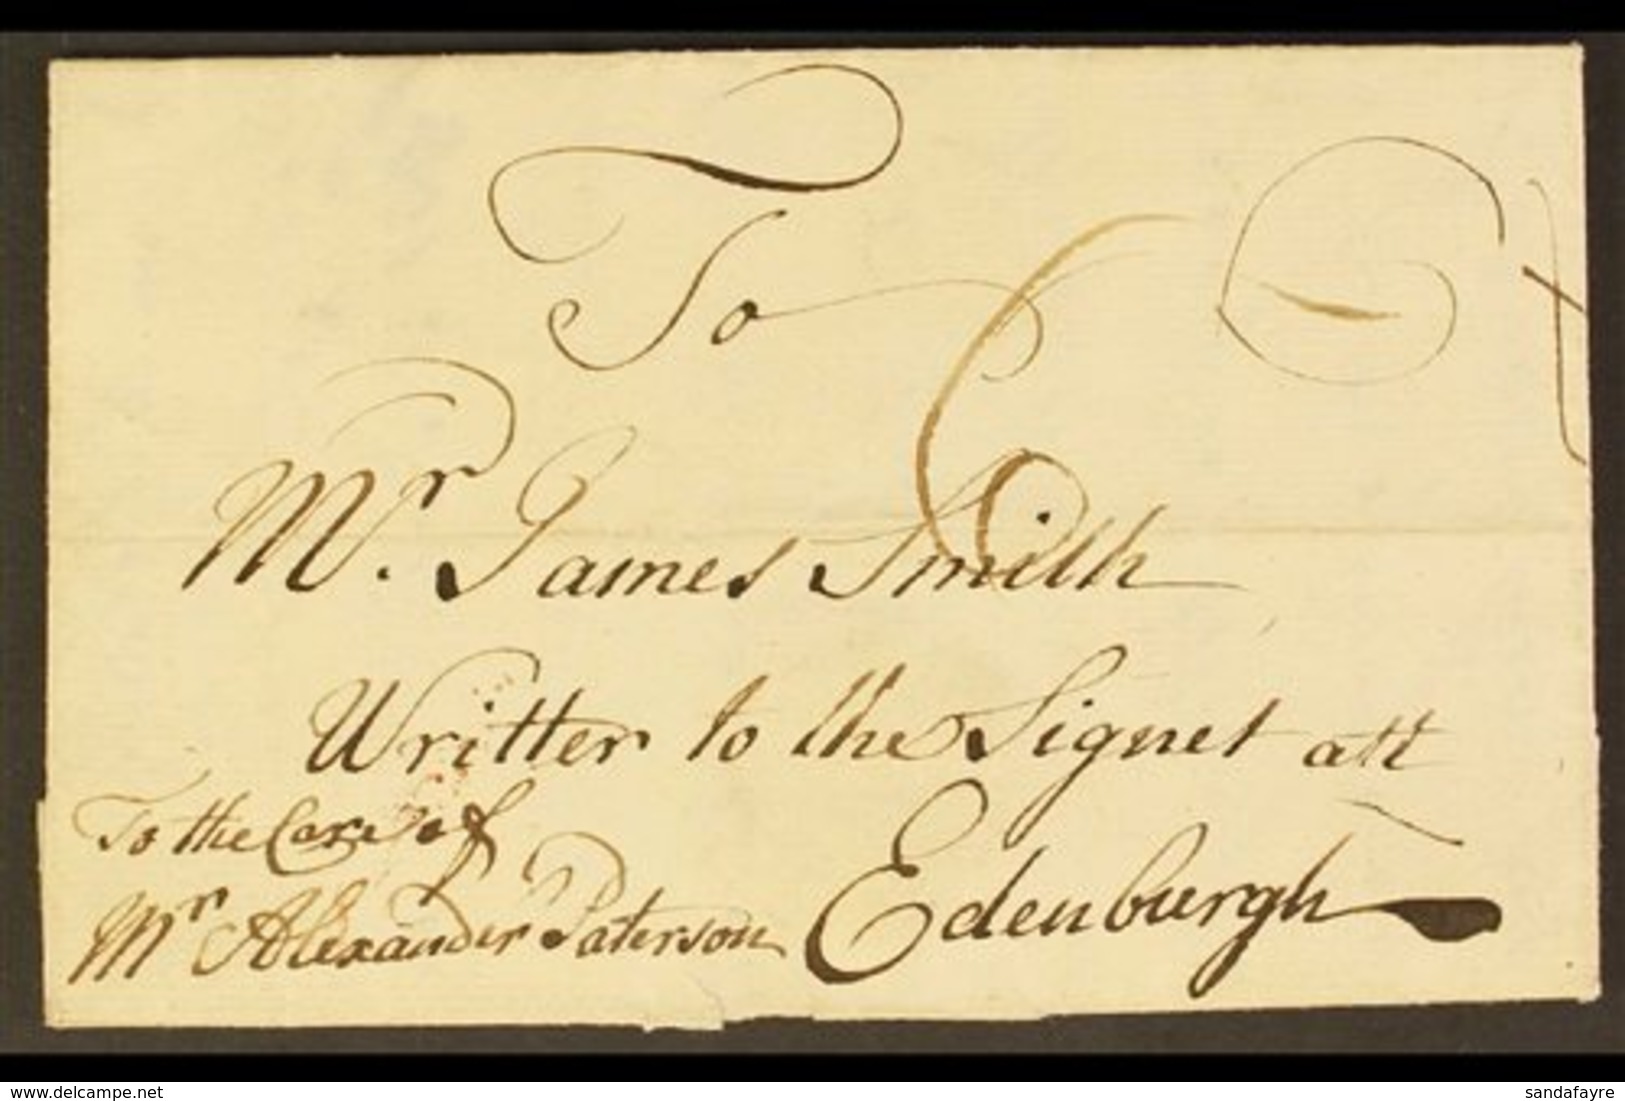 To
6
Mr. James Smith
Writter to the Signet att
Edenburgh
To the Care of
Mr Alexander Paterson
the-web-sale.delcampe.net
sandafayre